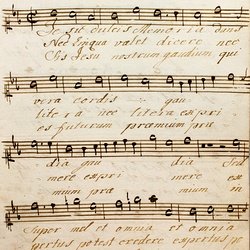 Je sit dulcis Memoria dans
Nec lingua valet dicere nec
Sis Jesu nostrum gaudium qui
vera cordis gau
litera nec litera expri
es futurum praemium prae
dia gau dia Sed
mere expri mere ex
mium prae mium
Super mel et omnia et omnia
pertus potest credere expertus